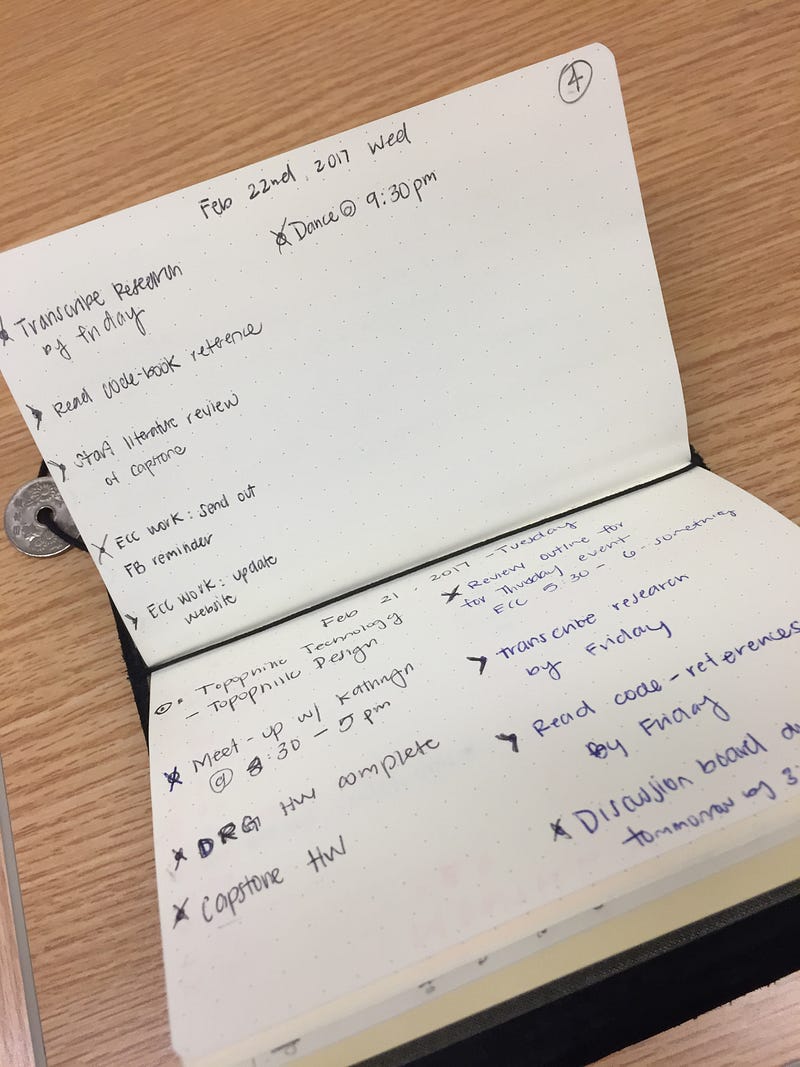 4
Feb 22nd, 2017 Wed
x Dance @ 9:30pm
x Transcribe Research
by friday
> Read code-book reference
> Start literature review
of capstone
x Ecc work: send out
FB reminder
> Ecc work: update
website
Feb 21, 2017 - Tuesday
Topophilic Technology
- Topophilic Design
x Meet-up w/ Kathryn
@ :30 - 5 pm
x DRG HW complete
x Capstone HW
x Review outline for
for Thursday event
ECC 5:30 - 6-something
> transcribe research
by Friday
> Read code-references
by Friday
x Discussion board
tommorow by 3: